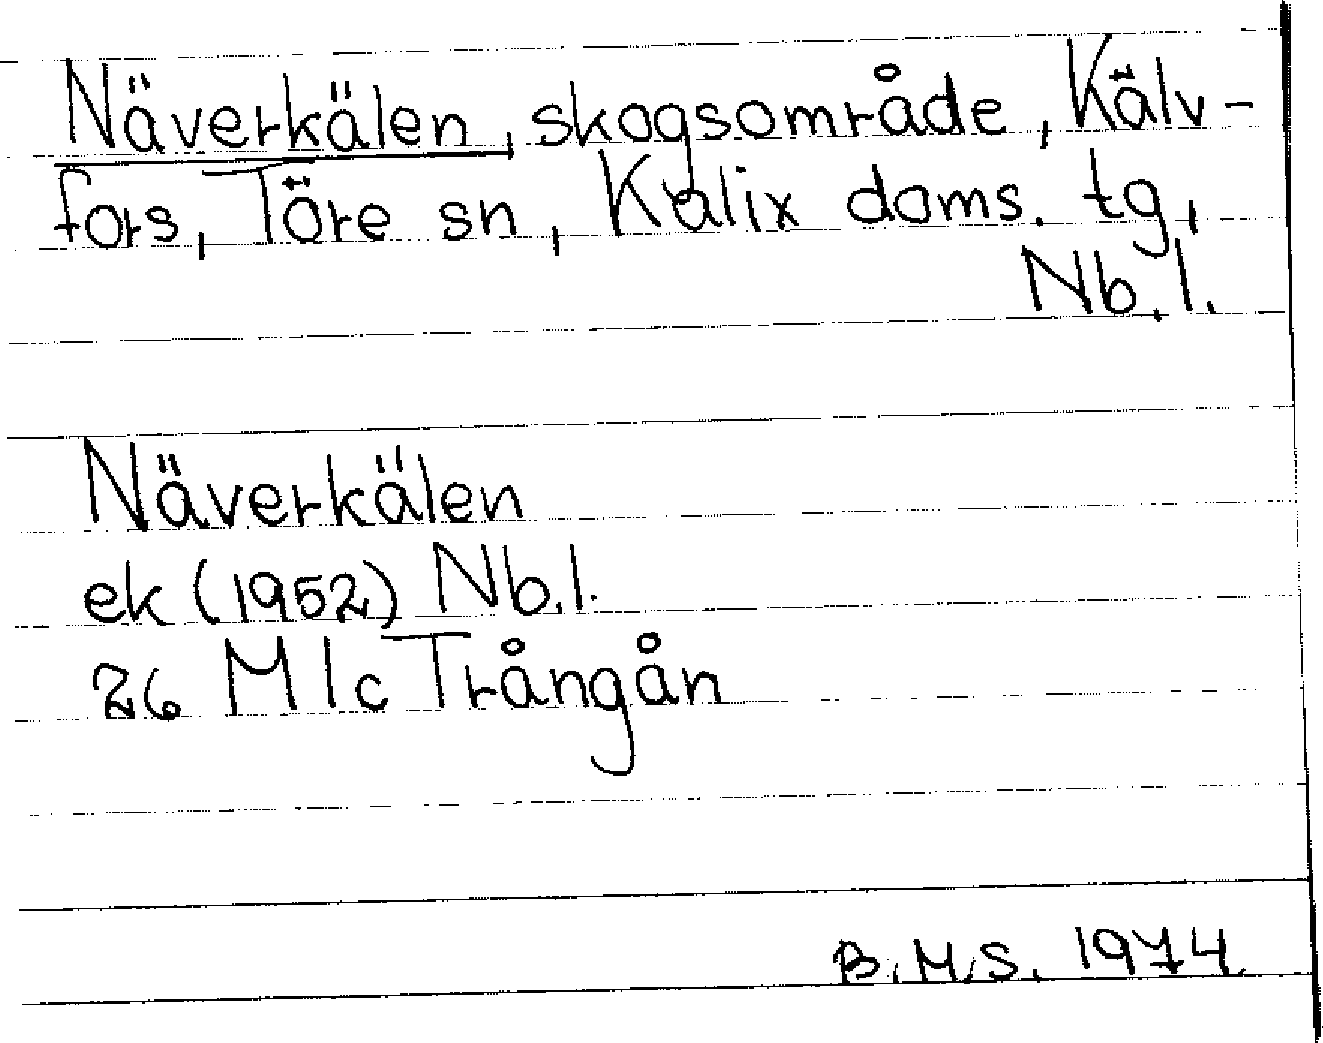 Näverkälen, skogsområde, Kälv-
fors, Töre sn, Kalix doms. tg,
Nb.l.
Näverkälen
ek (1952) Nb.l.
26 M 1c Trångån
B.M.S. 1974